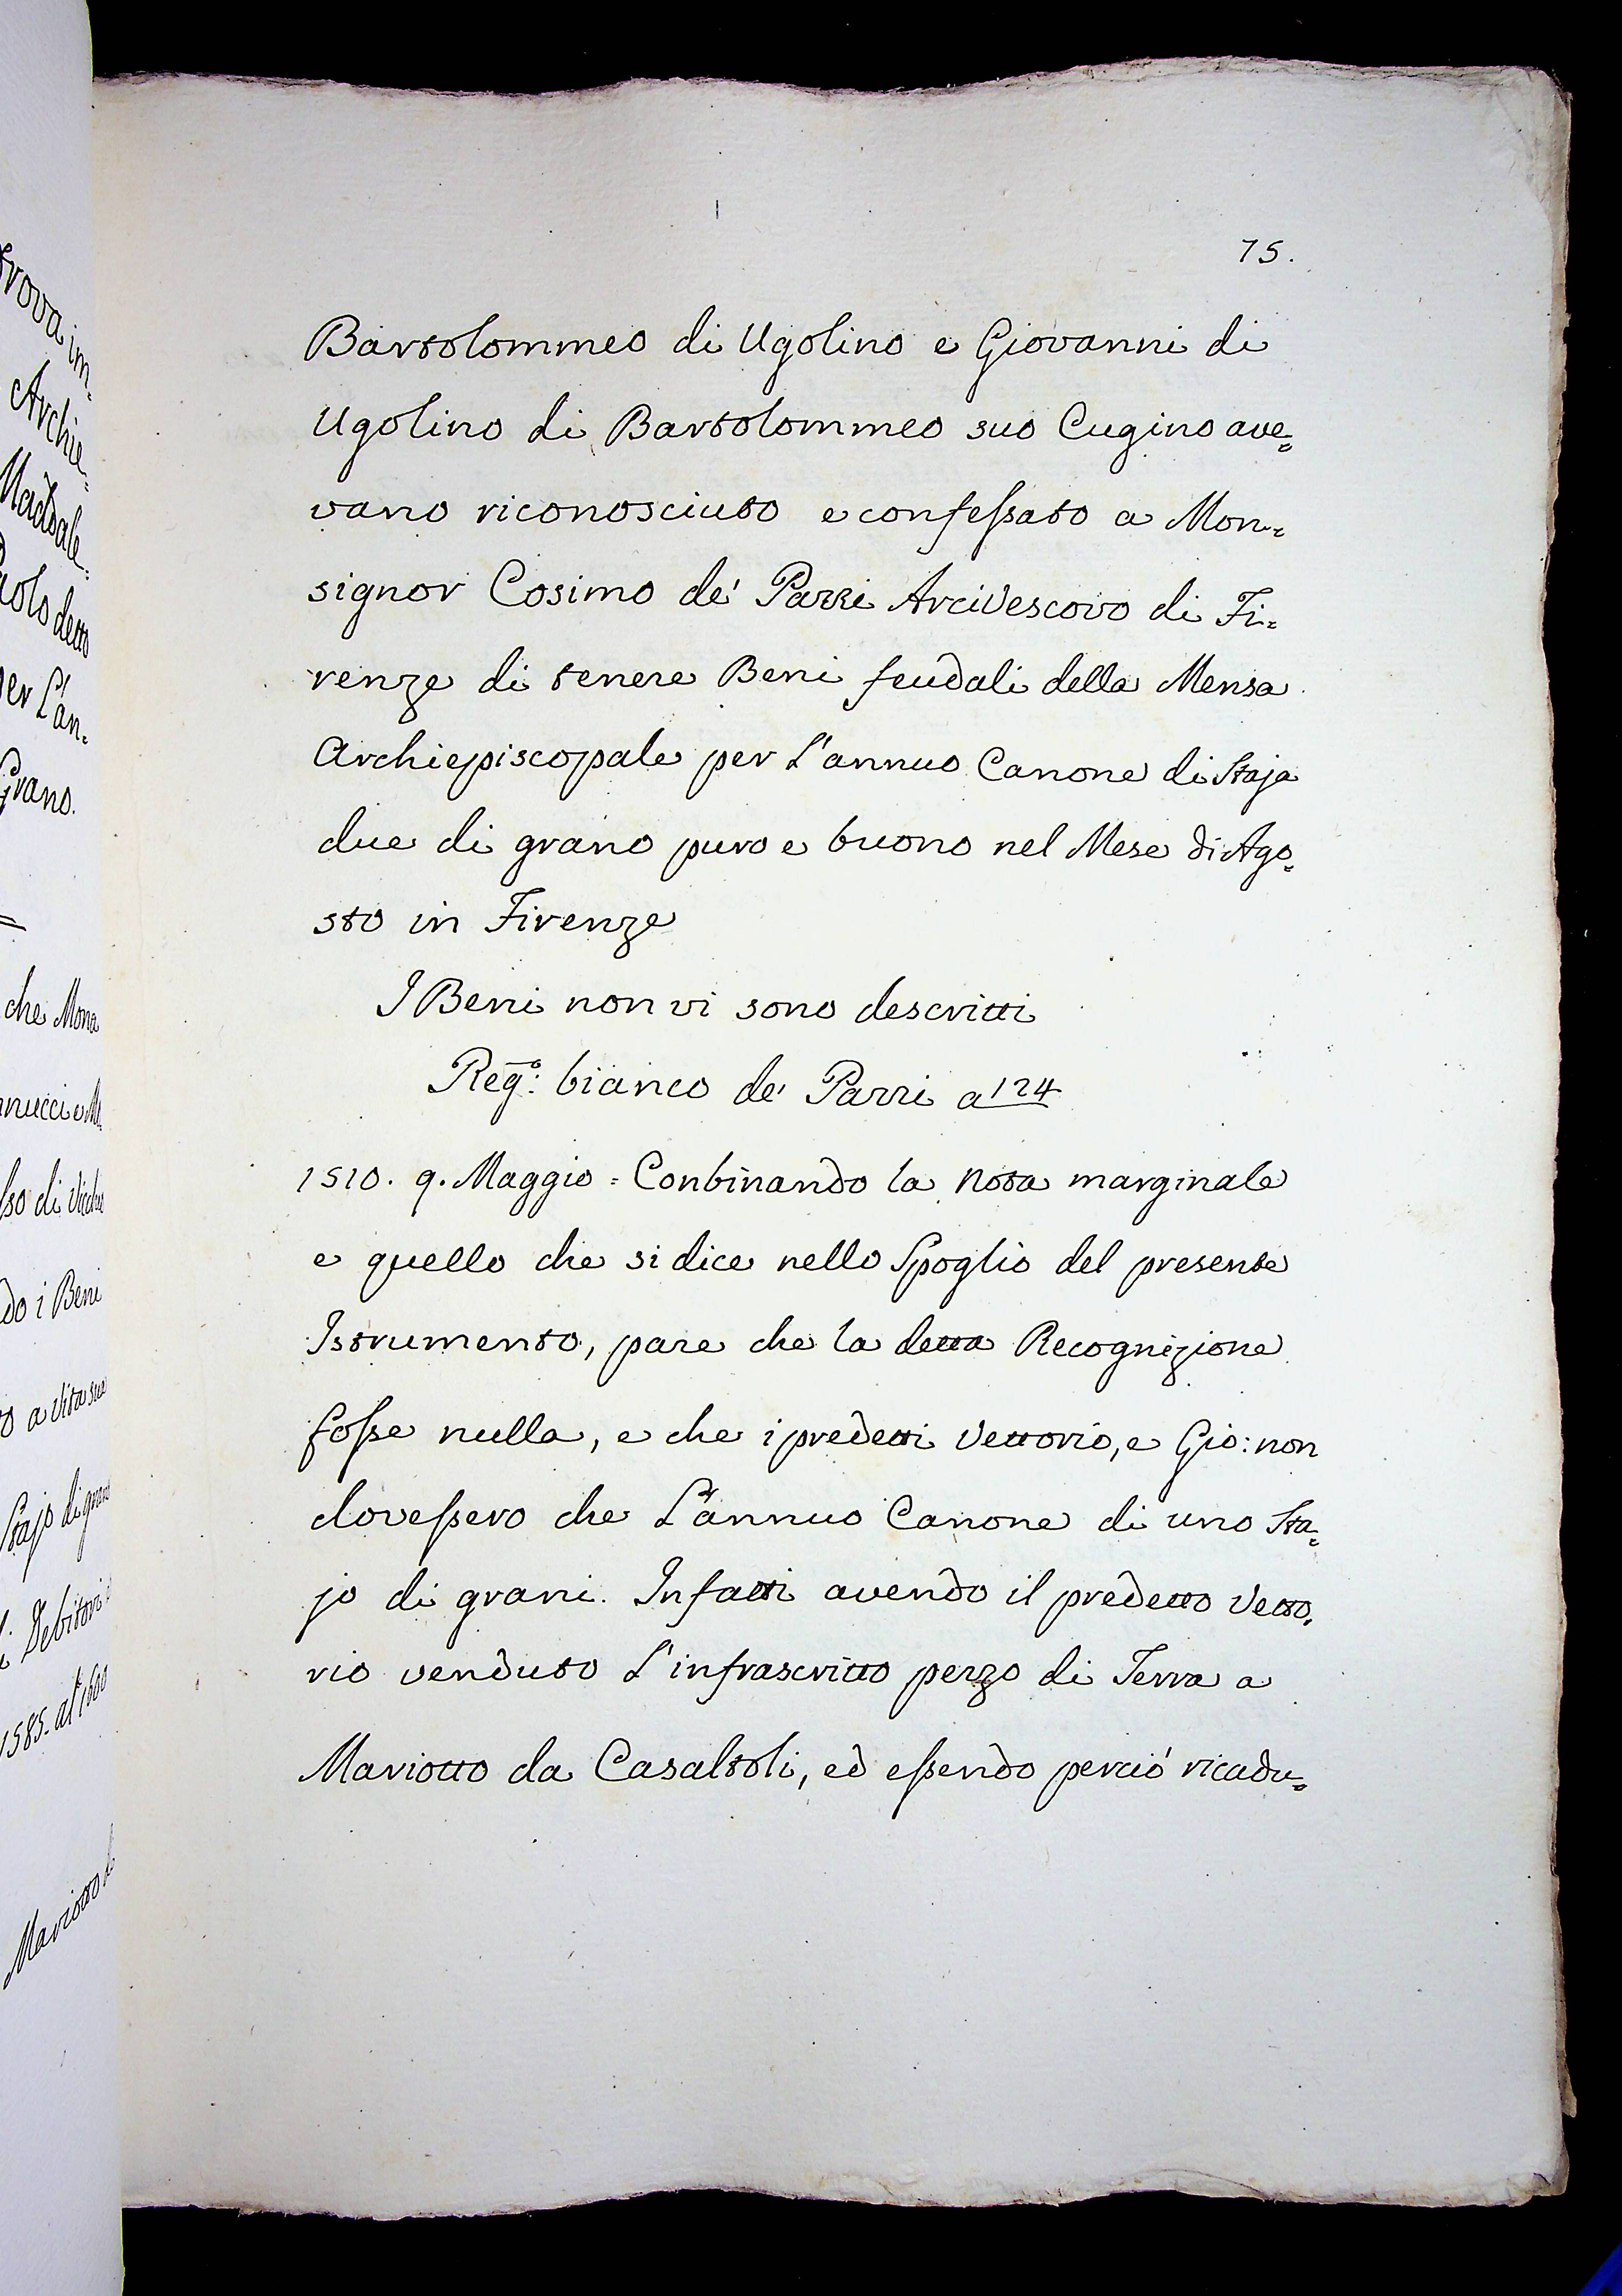 75.
Bartolommeo di Ugolino e Giovanni di
Ugolino di Bartolommeo suo Cugino ave=
vano riconosciuto e confessato a Mon=
signor Cosimo de' Pazzi Arcivescovo di Fi=
renze di tenere Beni feudali della Mensa
Archiepiscopale per L'annuo Canone di Staja
due di grano puro e buono nel Mese di Ago=
sto in Firenze
I Beni non vi sono descritti
Reg.º: bianco de' Pazzi a 124
1510. 9. Maggio = Conbinando la Nota marginale
e quello che si dice nello Spoglio del presente
Istrumento, pare che la detta Recognizione
fosse nulla, e che i predetti Vettorio, e Gio: non
dovessero che L'annuo Canone di uno Sta=
jo di grani. Infatti avendo il predetto Vetto=
rio venduto L'infrascritto pezzo di Terra a
Mariotto da Casaltoli, ed essendo perciò ricadu=
rova in=
Archie=
Paolo detto
per L'an=
Grano.
=
che Mona
nnucci e M
do i Beni
o a Vita sua
Stajo di grano
i Debitori
1585. al 1600
Mariotto d